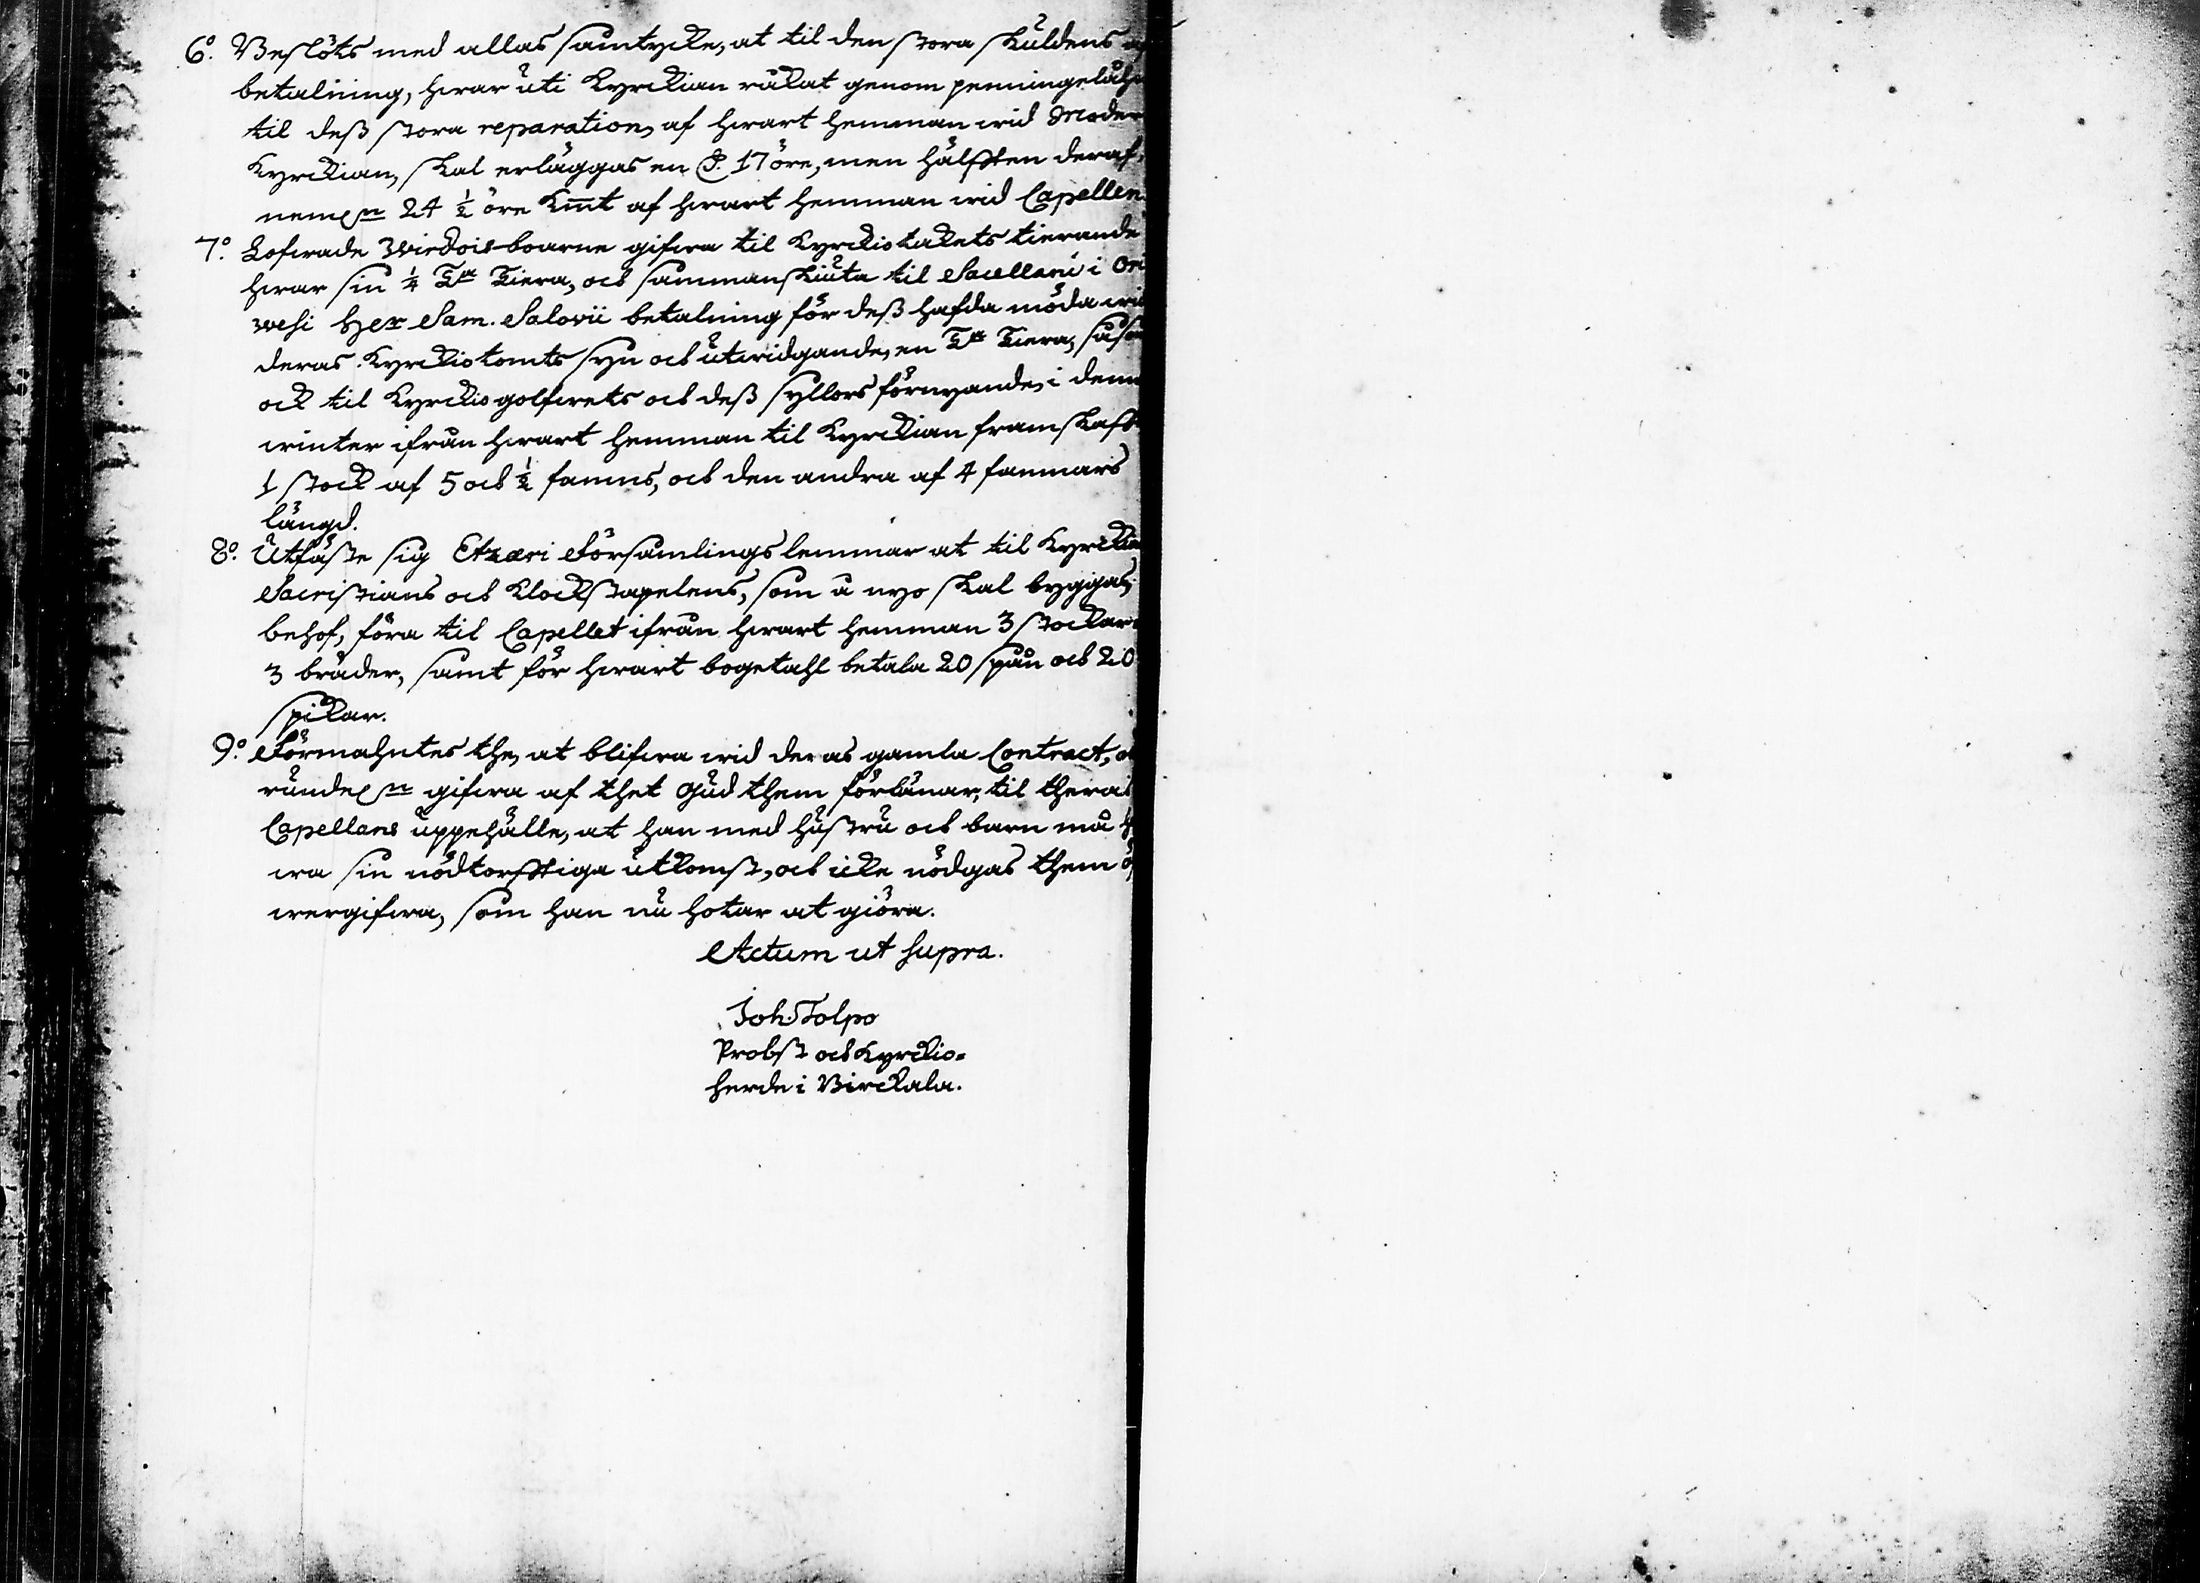 6:o Beslöts med allas samtycke, at til den stora skuldens
betalning, hwar uti Kyrckian råkat genom penningelåhn
til deß stora reparation, af hwart hemman wid Moder
Kyrckian, skal erläggas en D. 17 öre, men hälfften deraf,
neml:n 24 ½ öre Kmt af hwart hemman wid Capellen.
7:o Lofwade Wirdois-boarne gifwa til Kyrckiotakets tierande
hwar sin ¼ T:a Tiera, och sammanskiuta til Sacellani i Ori
wesi Her Sam. Salovii betalning för deß hafda möda wid
deras Kyrckiotomts syn och utwidgande, en T:a Tiera, såsom
ock til Kyrckiogolfwets och deß syllors förnyande, i denna
winter ifrån hwart hemman til Kyrckian framskaffa
1 stock af 5 och ½ famns, och den andra af 4 famnars
längd.
8:o Utfäste sig Etzæri Församlings lemmar at til Kyrckians
Sacristians och Klockstapelens, som å nyo skal byggas,
behof, föra til Capellet ifrån hwart hemman 3 stockar
3 bräder, samt för hwart bogetahl betala 20 spån och 20
spikar.
9:o Förmahntes the, at blifwa wid deras gamla Contract, och
rundel:n gifwa af thet Gud them förlänar, til theras
Capellans uppehälle, at han med hustru och barn må
wa sin nödtorfftiga utkomst, och icke nödgas them öf
wergifwa, som han nu hotar at giöra.
Actum ut supra.
Joh. Tolpo
Probst och Kyrckio-
herde i Birckala.